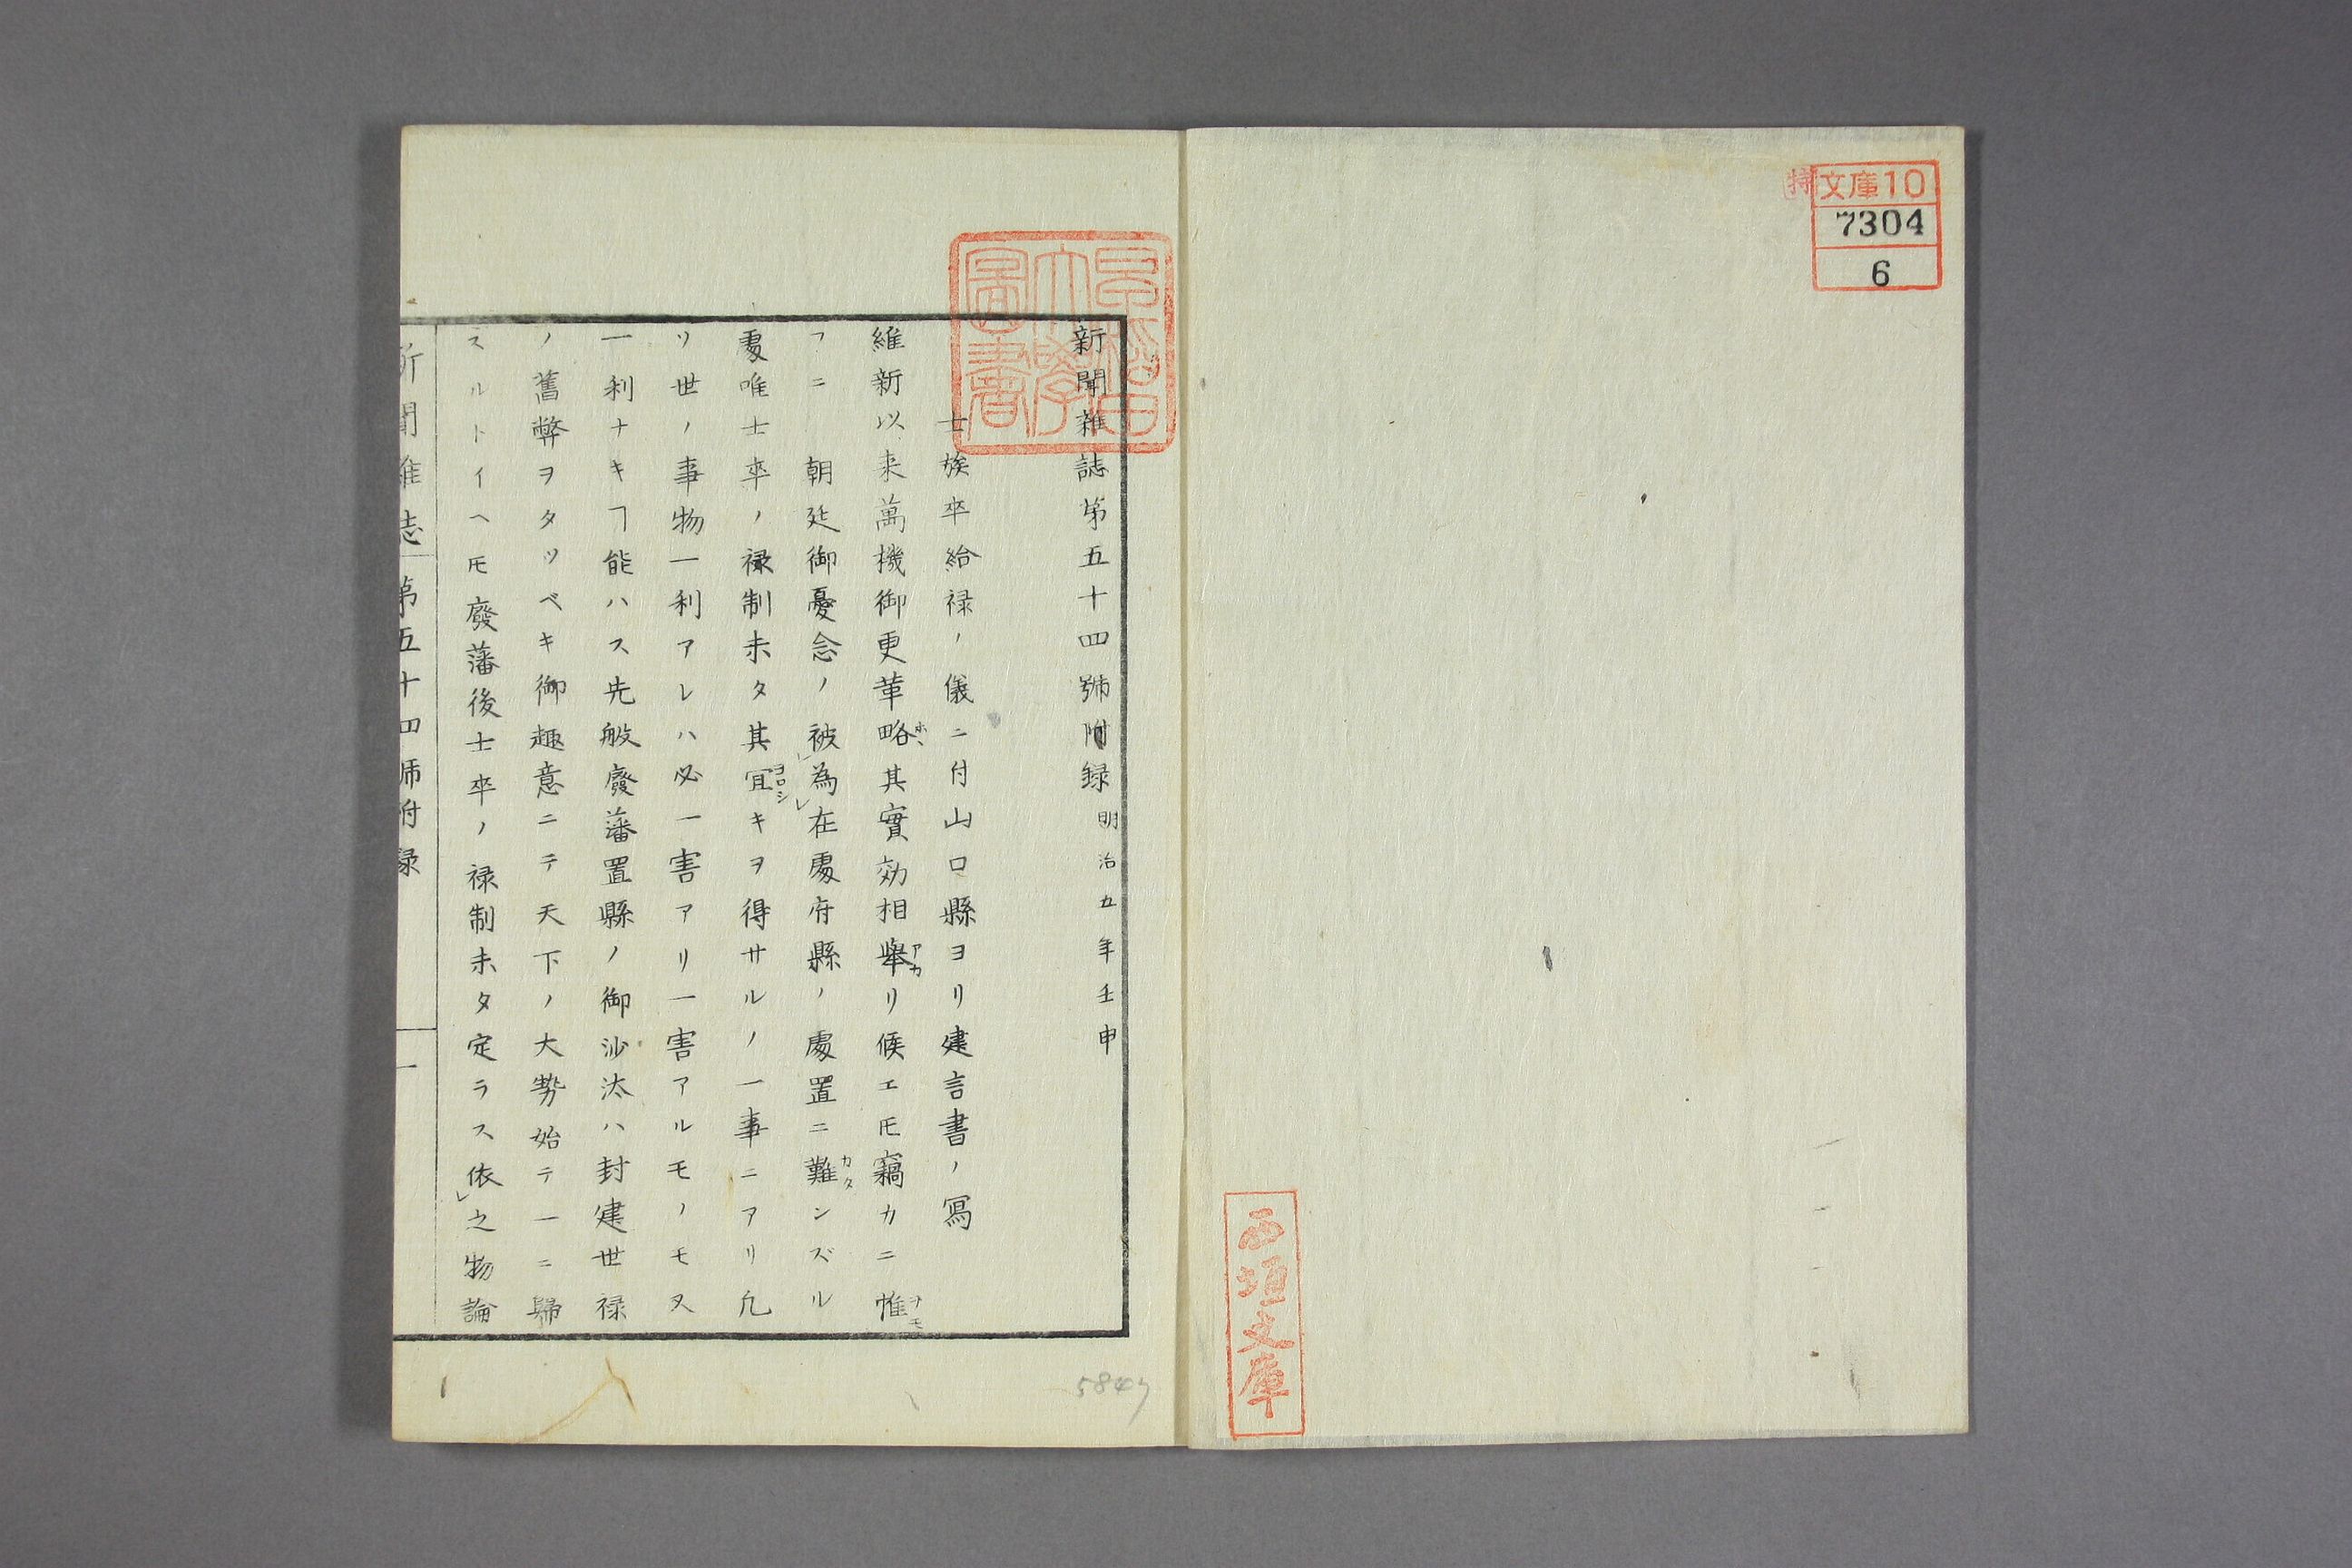 特
文庫10
7304
6
西垣文庫
早稲田大學圖書
新聞雜誌第五十四號附録 明治五年壬申
士族卒給禄ノ儀ニ付山口縣ヨリ建言書ノ寫
維新以来萬機御更革略ホヾ其實効相舉アカリ候エ𪜈竊カニ惟ヲモ
フニ 朝廷御憂念ノ被㆑為㆑在處府縣ノ處置ニ難カタンズル
處唯士卒ノ禄制未タ其宜ヨロシキヲ得サルノ一事ニアリ凡
ソ世ノ事物一利アレハ必一害アリ一害アルモノモ又
一利ナキヿ能ハス先般廢藩置縣ノ御沙汰ハ封建世禄
ノ舊弊ヲタツベキ御趣意ニテ天下ノ大勢始テ一ニ歸
スルトイヘ𪜈廢藩後士卒ノ禄制未タ定ラス依㆑之物論
新聞雜志 第五十四號附録 一
5847